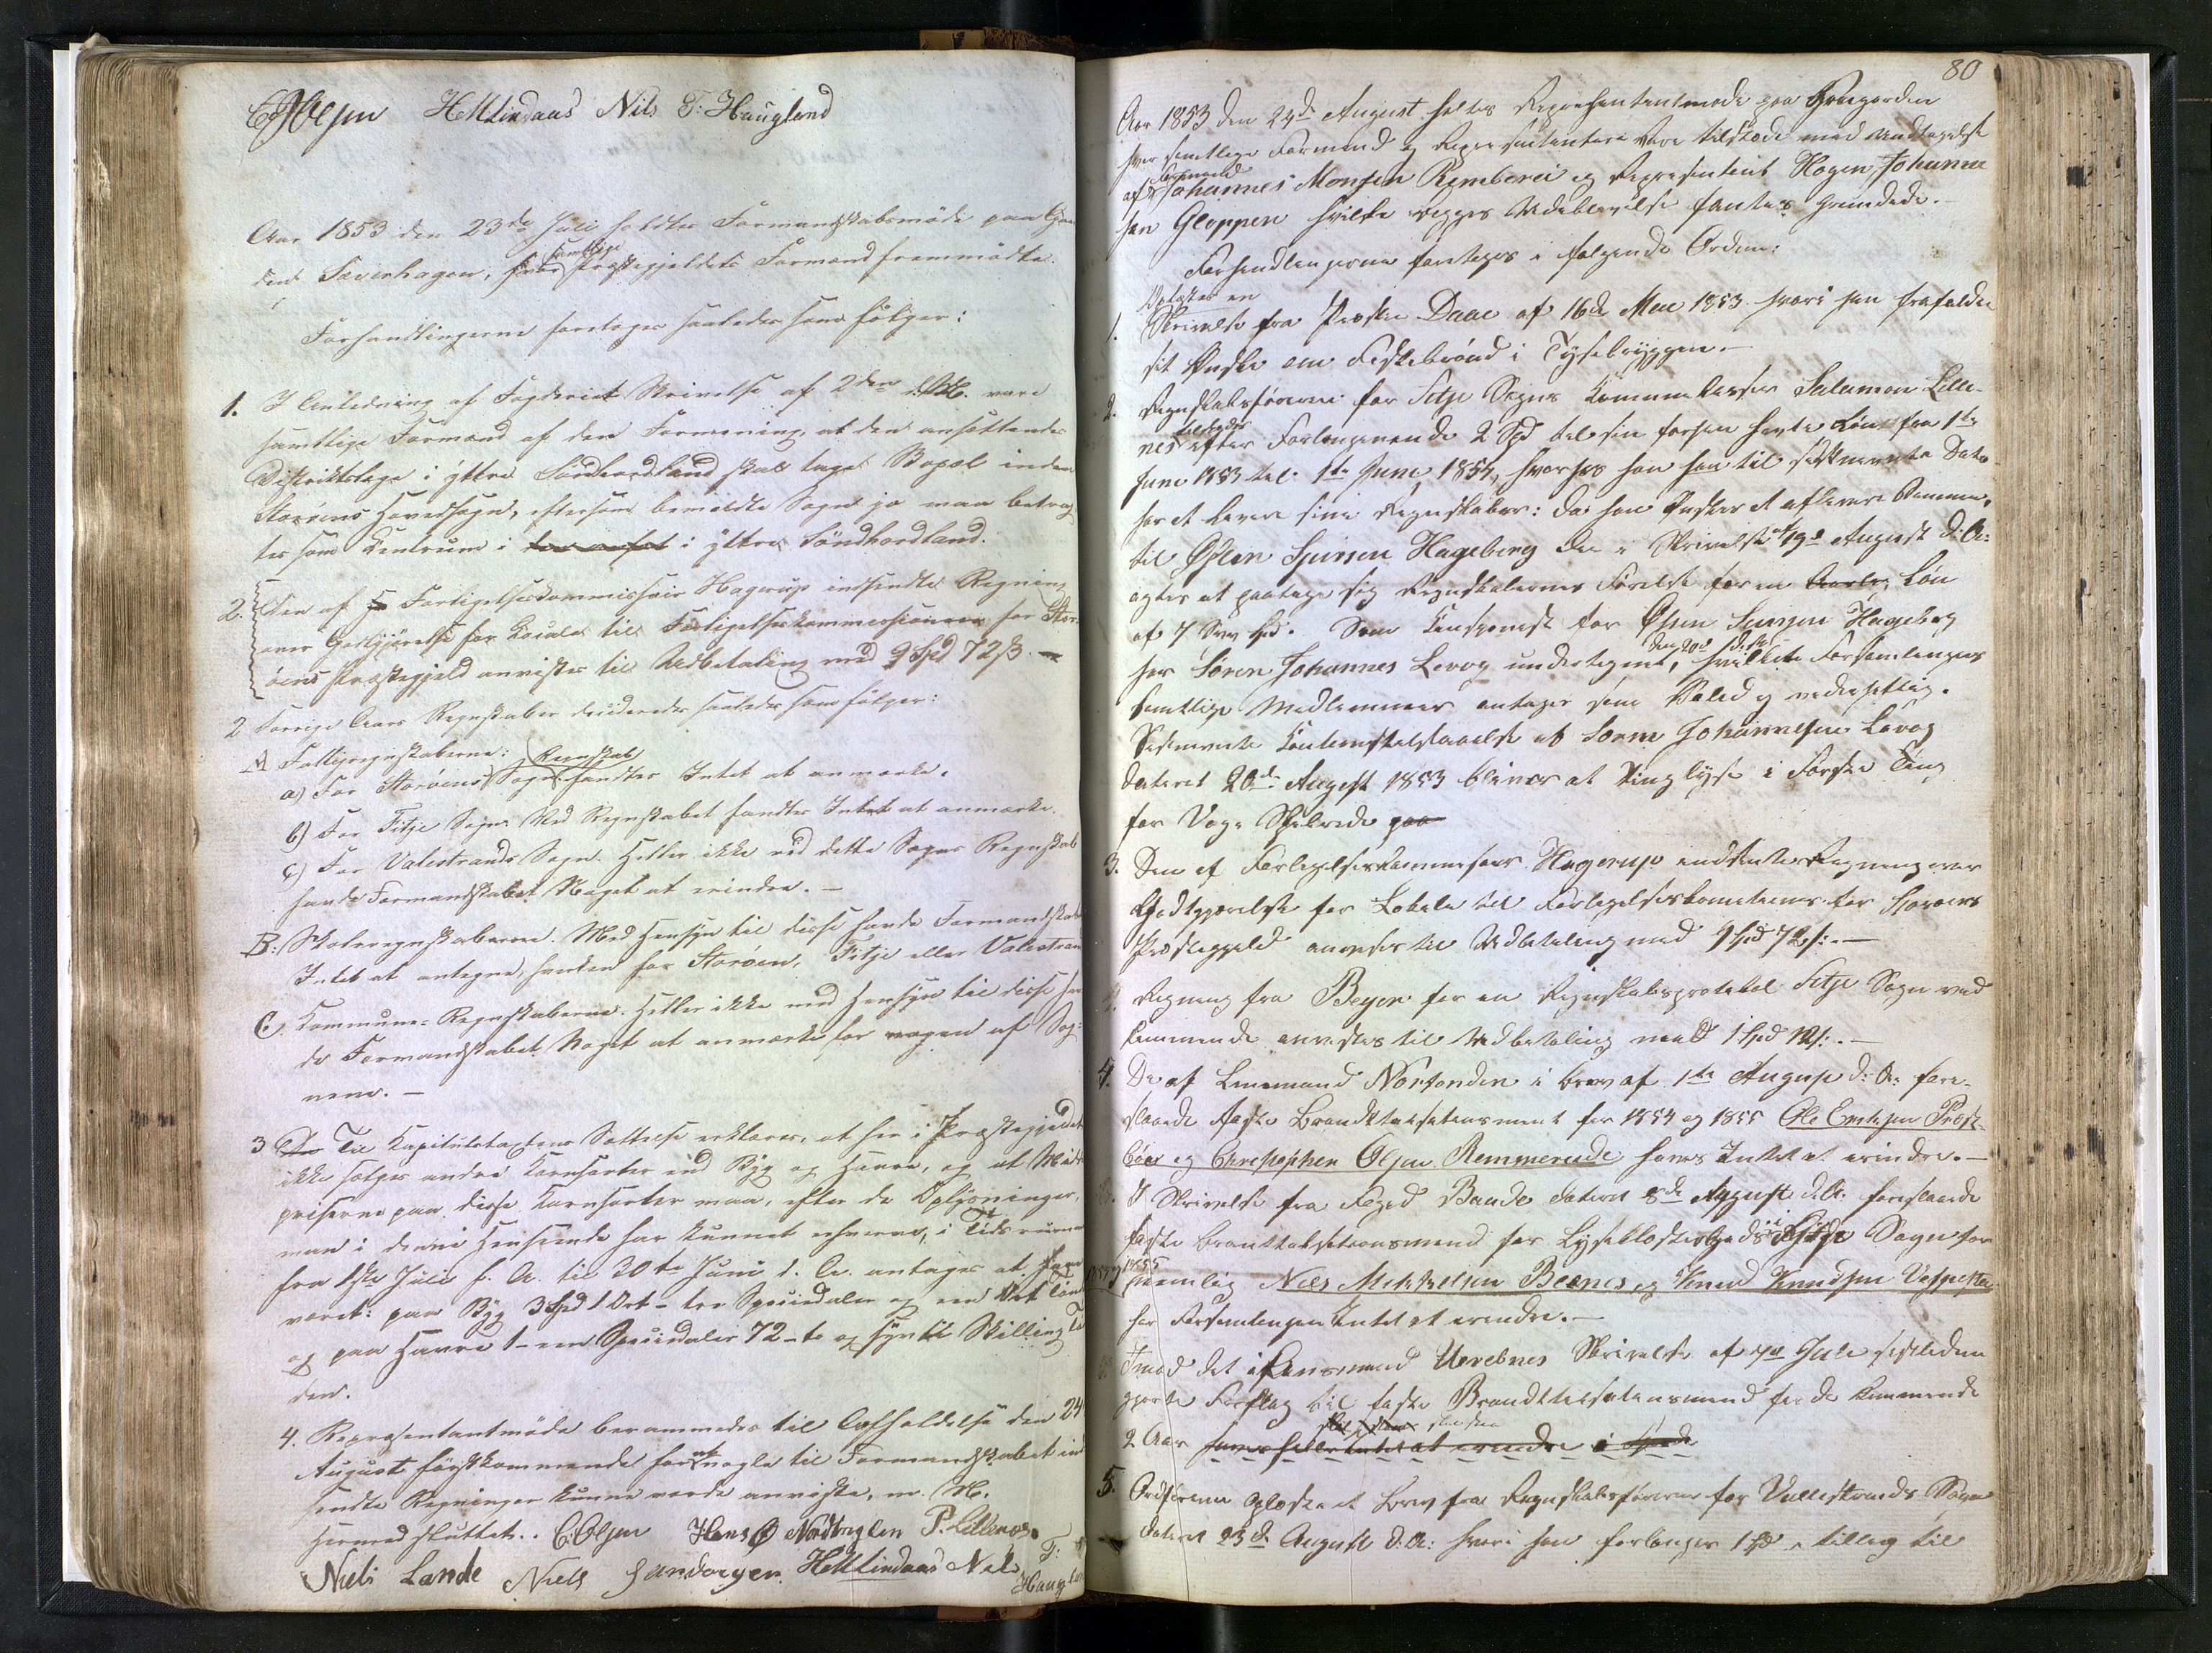 COlsen HMLindaas Nils T: Haugland
Aar 1853 den 23de Juli holdtes Formandskabsmøde paa Gaar
den Sævenhagen, hvor samtlige Præstegjeldets Formænd fremmødte.
Forhandlingerne foretoges saaledes som følger:
1. I Anledning af Fogderiets Skrivelse af 2den d. M. vare
samtlige Formænd af den Formening, at den ansøttendes
Distriktslæge i yttre Søndhordland skal tage Bopæl inden
Storøens Hovedsogn, eftersom bemeldte Sogn jo maa betrag
tes som Centrum i i yttre Søndhordland.
2. Den af Forligelseskommissair Hagerup indsendte Regning
over Godtgjørelse for Locale til Forligelseskommissionen for Stor-
øens Præstegjeld anvistes til Udbetaling med 9 Spd 72 ß. —
2 Forrige Aars Regnskaber decideredes saaledes som følger:
A Fattigregnskaberne:
a) For Storøens Sogns Regnskab fandtes Intet at anmærke.
b) For Fitje Sogn. Ved Regnskabet fandtes Intet at anmærke.
c) For Valestrands Sogn. Heller ikke ved dette Sogns Regnskab
havde Formandskabet Noget at erindre. —
B: Skoleregnskaberne. Med Hensyn til disse havde Formandskabet
Intet at antegne, hverken for Storøen, Fitje eller Valestrand
C. Kommune-Regnskaberne. Heller ikke med Hensyn til disse hav
de Formandskabet Noget at anmærke for nogen af Sog-
nene. —
3 Til Kapitelstaxtens Sættelse erklæres, at her i Præstegjeldet
ikke sælges andre Kornsorter end Byg og Havre, og at Middel
priserne paa disse Kornsorter maa, efter de Oplysninger,
man i denne Henseende har kunnet erhverve, i Tidsrummet
fra 1ste Juli f. A. til 30te Juni d. A. antages at have
været: paa Byg 3 Spd 1 Ort - tre Speciedaler og een Ort Tønden
og paa Havre 1 - een Speciedaler 72 - to og syvti Skilling Tøn
den.
4. Repræsentantmøde berammedes til Afholdelse den 24
August førstkommende for at nogle til Formandskabet ind
sendte Regninger kunne vorde anviste, m. M.
Hermed sluttet. C. Olsen Hans O Nordbryglen P. Lillenæs.
Niels Lande Niels Sandvigen HMLindaas Nils T: Haugland
80
Aar 1853 den 24de August holtes Representantmøde paa Præstgaarden
hvor samtlige Formend og Representantere vare tilstede med Undtagelse
af Formænd Johannes Monsen Remberei og Representent Hogen Johannes
sen Gloppen hvilke begges Udeblivelse fantes grundede. —
Forhandlingerne foretoges i følgende Orden:
1. Oplæstes en Skrivelse fra Provst Daae af 16de Mai 1853 hvori han frafalder
sit Ønske om Fiskebrønd i Tysebryggen. —
2. Regnskabsføreren for Fitje Sogns Kommunkasse Salamon Lille-
nes efter Forlangende 2 Spd til sin forhen havte Løn fra 1te
Juni 1853 til 1te Juni 1854, hvorhos han har til sidstnævnte Dato
har at levere sine Regnskaber: da han ønsker at aflevere samme
til Østen Sjursen Hageberg der i Skrivelse af 19de August d: A:
agter at paatage sig Regnskabernes Førelse for en Løn
af 7 Spd. Som Kausjonist for Østen Sjursen Hageberg
har Søren Johannes Levog undertegnet, den 20de ds. hvilket Forsamlingens
samtlige Medlemmer antager som Valid og vederheftig.
Bemeldte Kautionstilstaaelse af Søren Johannessen Levog
dateret 20de August 1853 bliver at Tinglyse i Første Ting
for Vogs Skibrede
3. Den af Forligelseskommissair Hagerup indsendte Regning over
Godtgjørelse for Lokale til Forligelseskommissionen for Storøens
Præstegjeld anvistes til Udbetaling med 9 Spd 72 s:. —
4. Regning fra Beyer for en Regnskabsprotokol Fitje Sogn ved
kommende anvistes til Udbetaling med 1 Spd 12 s:. —
4. De af Lensmand Nordanden i brev af 1te August d: A: fore-
slaaede faste Brandttaxsationsmend for 1854 og 1855 Ole Eriksen Prest-
bøen og Christopher Olsen Remmerede haves Intet at erindre. —
I Skrivelse fra Foged Bande dateret 8de August d. A: foreslaaede
faste Brandttaksationsmend for Lysekloster Gods i Fitje Sogn for
1854 og 1855 nemlig Niels Mikkelsen Bernes, og Knud Knudsen Vespestad
har Forsamlingen Intet at erindre. —
Imod det i Lensmand Urebnes Skrivelse af 4de Juli sistleden
gjorte Forslag til faste Brandttaksationsmend for de kommende
2 Aar haves heller Intet at erindre i
5. Ordføreren oplæste et Brev fra Regnskabsføreren for Vallestrands Sogn
dateret 23de August d. A: hvori han forlanger 1 Spd i tillæg til